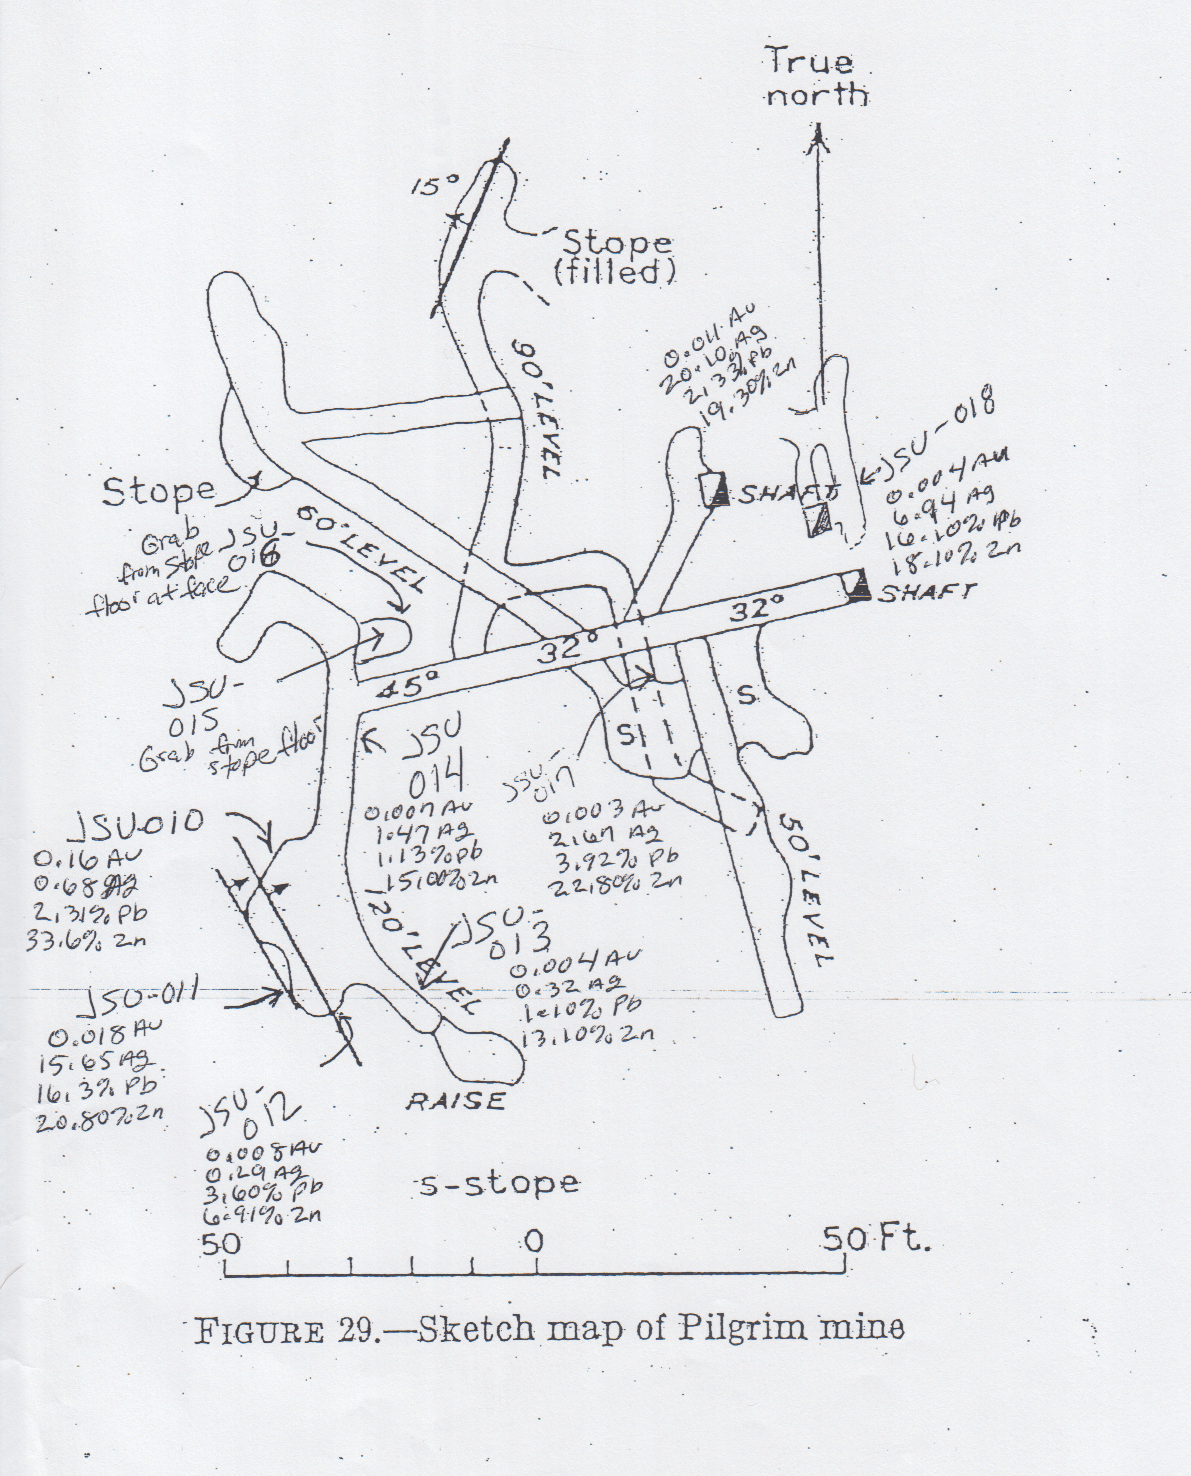 True
north
15°
Stope
(filled)
90' LEVEL
0.011 Au
20.10 Ag
2.33% Pb
19.30% Zn
JSU-018
0.004 Au
6.94 Ag
16.10% Pb
18.10% Zn
SHAFT
SHAFT
Stope
60' LEVEL
Grab JSU-
from stope 016
floor at face
32°
32°
45°
S
S
JSU-
015
Grab from
stope floor
JSU
014
0.007 Au
1.47 Ag
1.13% Pb
15.00% Zn
JSU-
017
0.003 Au
2.67 Ag
3.92% Pb
22.80% Zn
50' LEVEL
JSU-010
0.16 Au
0.68 Ag
2.31% Pb
33.6% Zn
120' LEVEL
JSU-
013
0.004 Au
0.32 Ag
1.10% Pb
13.10% Zn
JSU-011
0.018 Au
15.65 Ag
16.3% Pb
20.80% Zn
JSU-
012
0.008 Au
0.29 Ag
3.60% Pb
6.91% Zn
RAISE
s-stope
50 0 50 Ft.
FIGURE 29.—Sketch map of Pilgrim mine